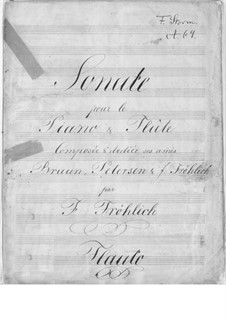 F. Storm
A. 69.
Sonate
pour le
Piano & Flûte
Composée & dediée aux amis
Bruun, Petersen & f. Fröhlich
par
F Fröhlich
Flauto